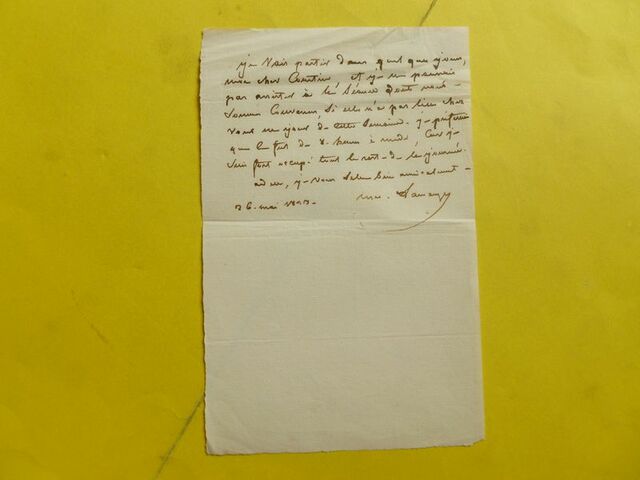 je vais partir dans quelques jours,
mon cher Courtin, et je ne pourrai
pas assister à la séance dont nous
sommes convenus, si elle n'a pas lieu chez
vous un jour de cette semaine. je
que ce fut de 8. heures à midi, car je
suis fort occupé tout le reste de la journée.
adieu, je vous salue bien amicalement
26. mai